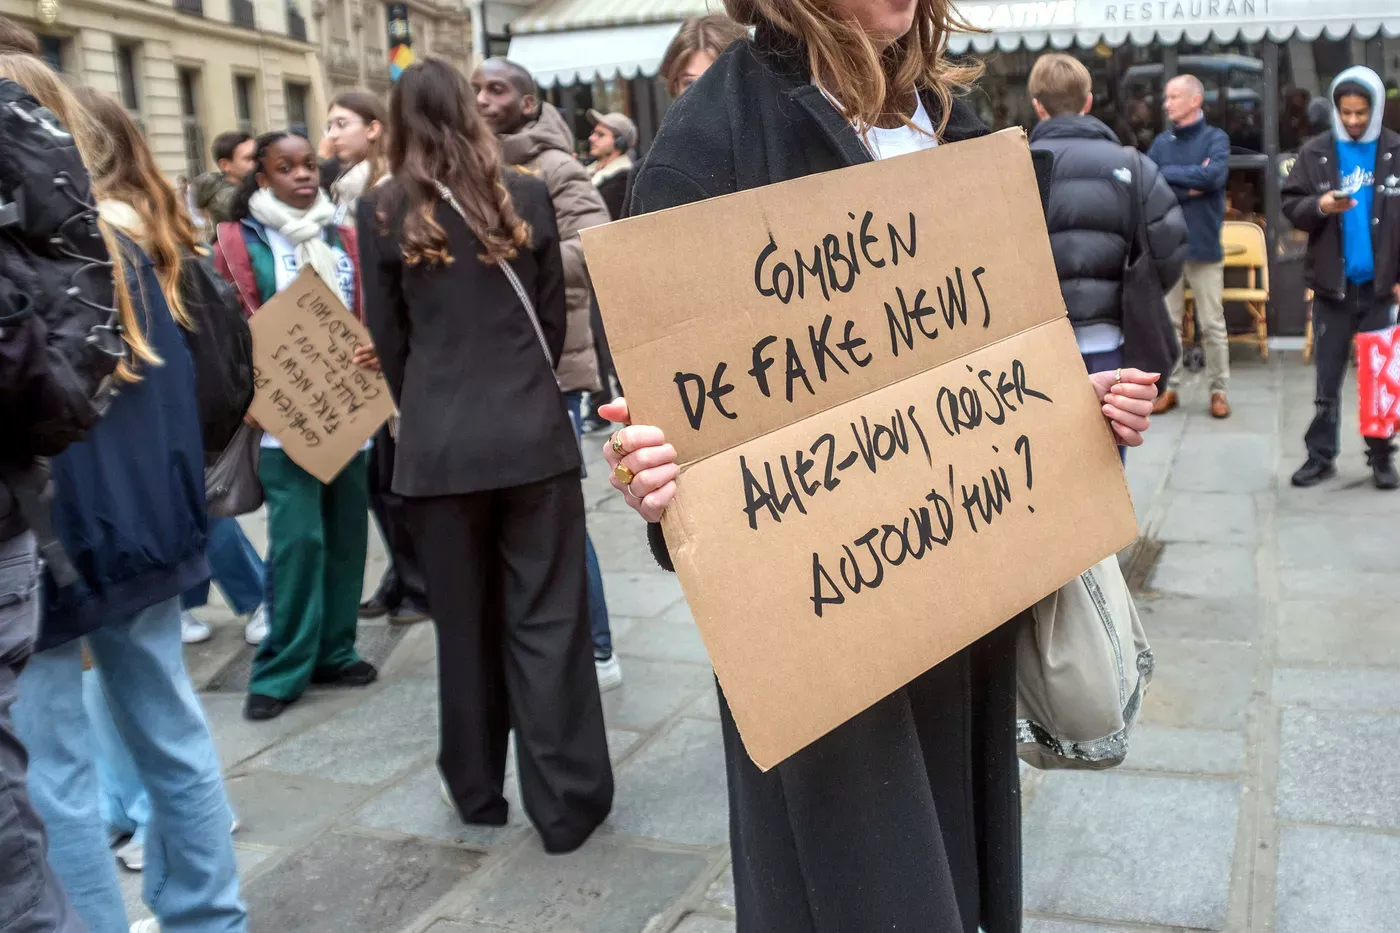 COMBIEN
DE FAKE NEWS
ALLEZ-VOUS CROISER
AUJOURD'HUI ?
COMBIEN DE
FAKE NEWS
ALLEZ-VOUS
CROISER
AUJOURD'HUI ?
RESTAURANT